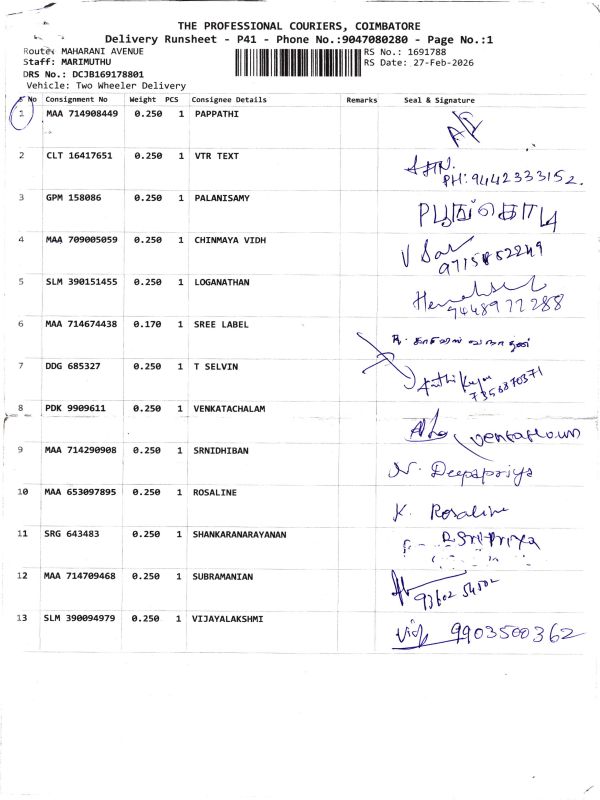 THE PROFESSIONAL COURIERS, COIMBATORE
Delivery Runsheet - P41 - Phone No.:9047080280 - Page No.:1
Route: MAHARANI AVENUE
RS No.: 1691788
Staff: MARIMUTHU
RS Date: 27-Feb-2026
DRS No.: DCJB169178801
Vehicle: Two Wheeler Delivery
S No Consignment No Weight PCS Consignee Details Remarks Seal & Signature
1 MAA 714908449 0.250 1 PAPPATHI
2 CLT 16417651 0.250 1 VTR TEXT
PH: 9442333152.
3 GPM 158086 0.250 1 PALANISAMY
4 MAA 709005059 0.250 1 CHINMAYA VIDH
5 SLM 390151455 0.250 1 LOGANATHAN
9448977288
6 MAA 714674438 0.170 1 SREE LABEL
7 DDG 685327 0.250 1 T SELVIN
7356870371
8 PDK 9909611 0.250 1 VENKATACHALAM
9 MAA 714290908 0.250 1 SRNIDHIBAN N. Deepapriya
10 MAA 653097895 0.250 1 ROSALINE K. Rosaline
11 SRG 643483 0.250 1 SHANKARANARAYANAN
12 MAA 714709468 0.250 1 SUBRAMANIAN
13 SLM 390094979 0.250 1 VIJAYALAKSHMI 9903500362